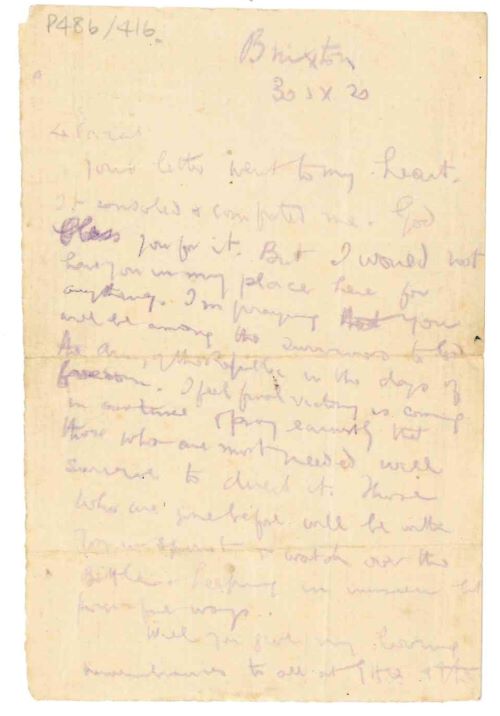 P486/416.
Brixton
30 IX 20
A Chara
Your letter went to my heart.
It consoled & comforted me. God
bless you for it. But I would not
have you in my place here for
anything. I'm praying that you
will be among the survivors to lead
the Army of the Republic in the days of
freedom. I feel final victory is coming
in our time & pray earnestly that
those who are most needed will
survive to direct it. Those
who are gone before will be with
you in spirit to watch over the
battle & helping in unseen but
powerful ways.
Will you give my loving
remembrances to all at G.H.Q.